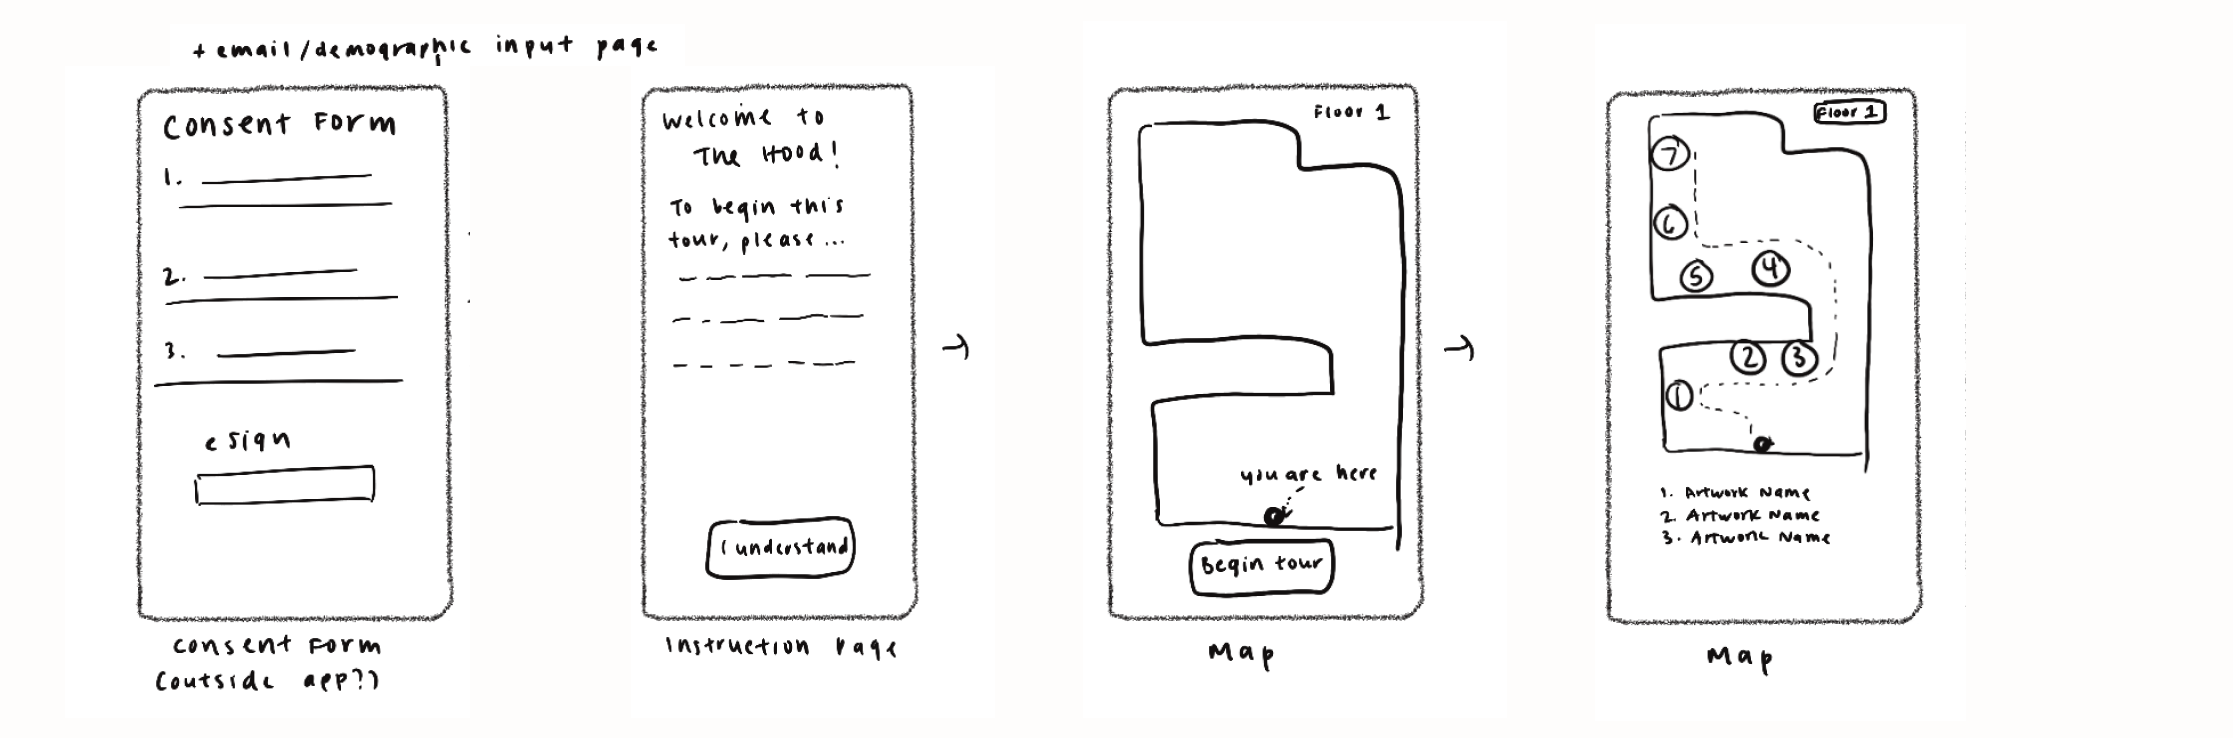 + email/demographic input page
Consent Form
1.
2.
3.
e sign
Consent Form
(outside app?)
Welcome to
The Hood!
To begin this
tour, please...
I understand
Instruction Page
→
Floor 1
you are here
Begin tour
Map
→
Floor 1
7
6
5
4
2
3
1
1. Artwork Name
2. Artwork Name
3. Artwork Name
Map